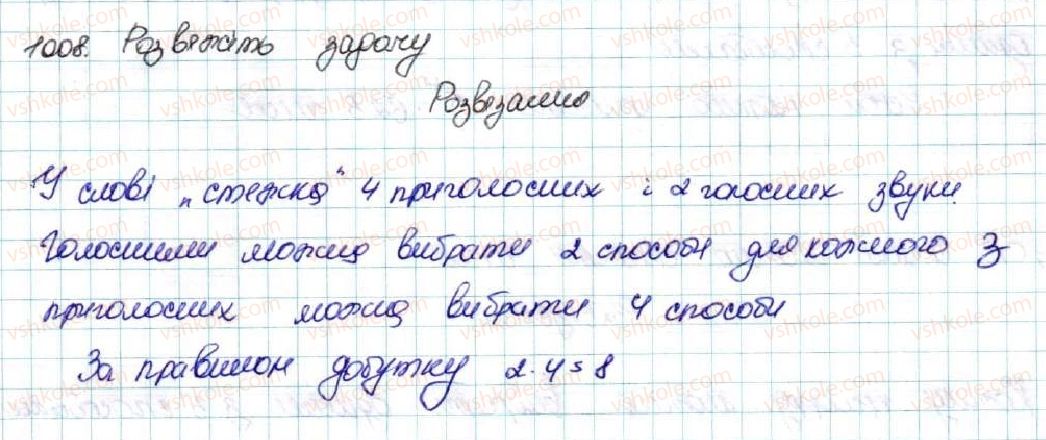 1008. Розвяжіть задачу
Розвязання
У слові „стежка" 4 приголосних і 2 голосних звуки.
Голосними можна вибрати 2 способи для кожного з
приголосних можна вибрати 4 способи
За правилом добутку 2·4=8